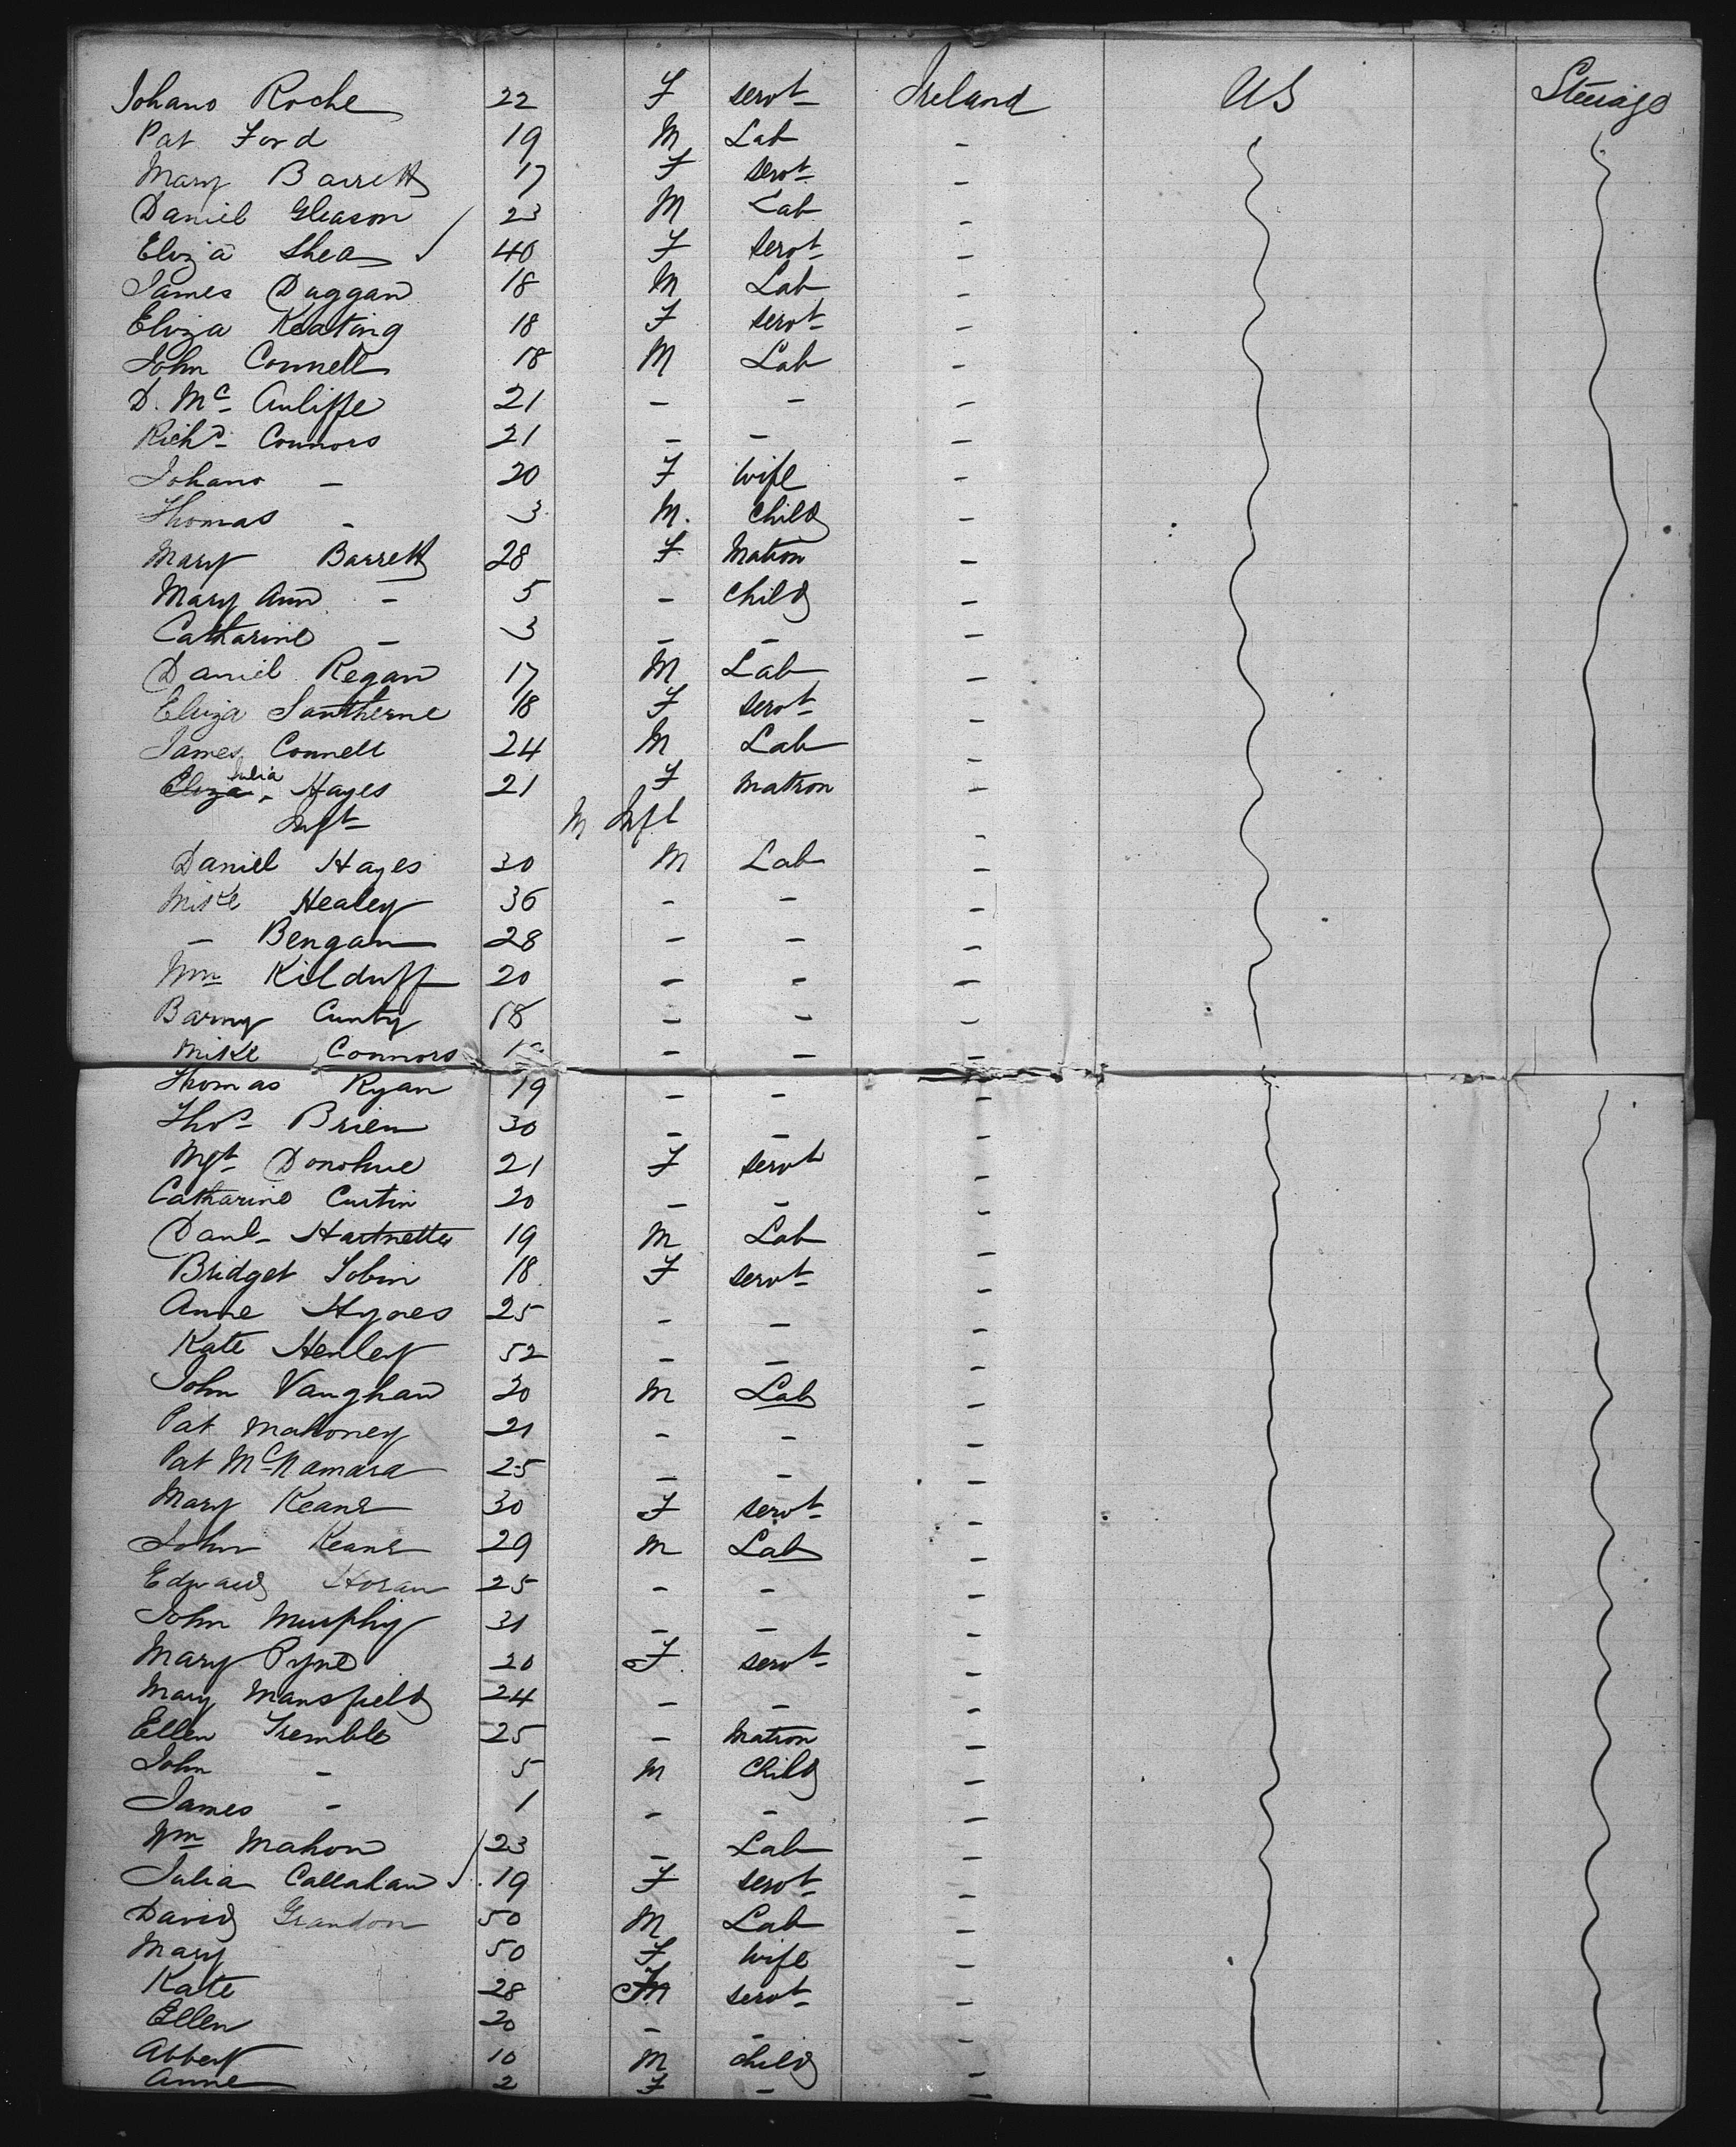 Johano Roche 22 F servt Ireland US Steerage
Pat Ford 19 M Lab -
Mary Barrett 17 F servt -
Daniel Gleason 23 M Lab -
Eliza Shea ✓ 40 F servt -
James Duggan 18 M Lab -
Eliza Keating 18 F servt -
John Connell 18 M Lab -
D. Mc Auliffe 21 - - -
Richd Connors 21 - - -
Johano - 20 F Wife -
Thomas - 3 M. Child -
Mary Barrett 28 F Matron -
Mary Ann - 5 - Child -
Catharine - 3 - - -
Daniel Regan 17 M Lab -
Eliza 18 F servt -
James Connell 24 M Lab -
Eliza Julia Hayes 21 F Matron -
Inft M Inft -
Daniel Hayes 30 M Lab -
Mike Healey 36 - - -
- Bengan 28 - - -
Wm Kilduff 20 - - -
Barny Cunty 18 - - -
Mike Connors - - -
Thomas Ryan 19 - - -
Thos Brien 30 - - -
Mgt Donohue 21 F servt -
Catharine Curtin 20 - - -
Danl Hartnette 19 M Lab -
Bridget Tobin 18 F servt -
Anne Hynes 25 - - -
Kate Henley 52 - - -
John Vaughan 20 M Lab -
Pat Mahoney 21 - - -
Pat McNamara 25 - - -
Mary Keane 30 F servt -
John Keane 29 M Lab -
Edward Horan 25 - - -
John Murphy 31 - - -
Mary Pyne 20 F servt -
Mary Mansfield 24 - - -
Ellen Tremble 25 - Matron -
John - 5 M Child -
James - 1 - - -
Wm Mahon 23 - Lab -
Julia Callahan ✓ 19 F servt -
David Grandon 50 M Lab -
Mary 50 F Wife -
Kate 28 F servt -
Ellen 20 - - -
Abbert 10 M child -
Anne 2 F - -